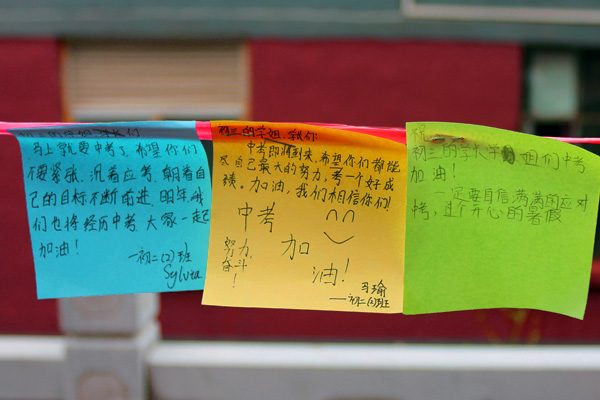 初三的学姐、学长们
马上就要中考了,希望你们
不要紧张,沉着应考,朝着自
己的目标不断前进,明年我
们也将经历中考,大家一起
加油!
—初二(2)班
Sylvia
初三的学姐、学长们
中考即将到来,希望你们都能
尽自己最大的努力,考一个好成
绩。加油,我们相信你们!
中考
加
油!
努力,
奋斗
!
——初二(2)班
祝
初三的学长学姐们中考
加油!
一定要自信满满的应对
中考,过个开心的暑假